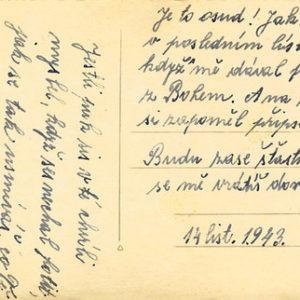 Jestli pak si v té chvíli
myslel, když ses nechal fotit,
jak se tak usmíváš, co
Je to osud! Jak,
v posledním lís
když mě dával
z Bohem. A na
se zapoměl přips
Budu zase šťast
se mě vrátíš dom
14 list. 1943.